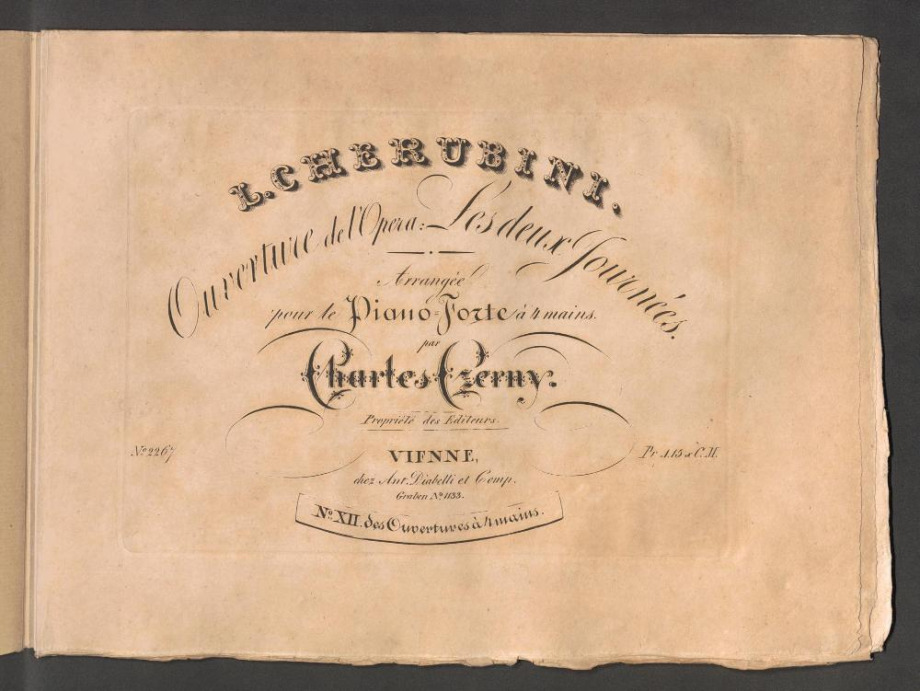 L. CHERUBINI.
Ouverture de l'Opera: Les deux Journées.
Arrangée
pour le Piano=Forte à 4 mains.
par
Charles Czerny.
Propriété des Editeurs.
Nº 2267
VIENNE,
Pr. 1.15 x C.M.
chez Ant. Diabelli et Comp.
Graben Nº 1133.
Nº XII. des Ouvertures à 4 mains.